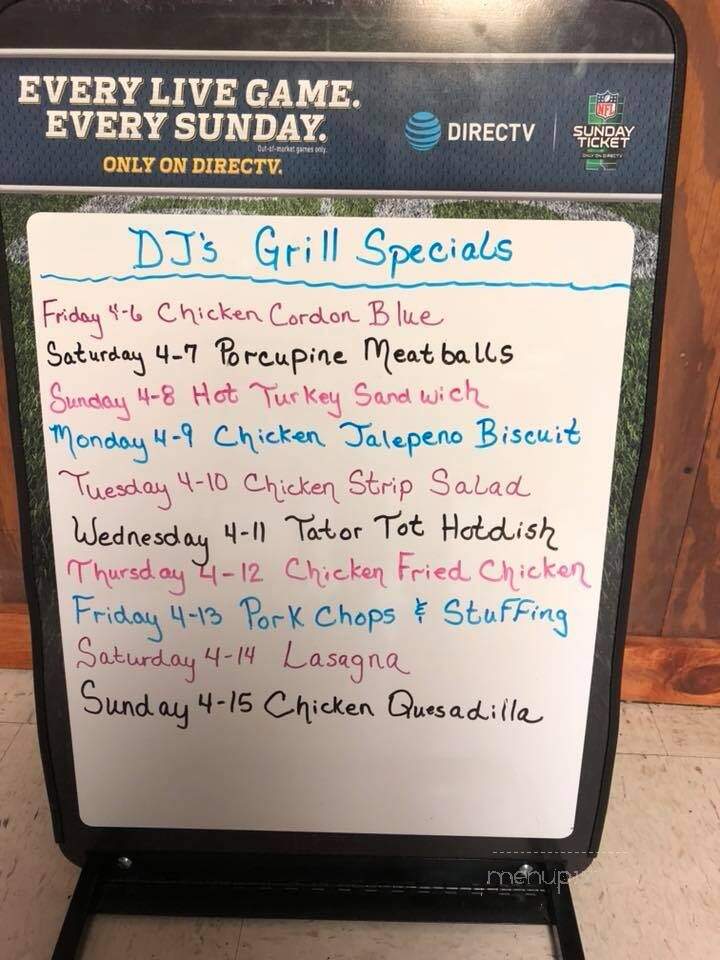 EVERY LIVE GAME.
EVERY SUNDAY.
Out-of-market games only.
ONLY ON DIRECTV.
DIRECTV
NFL
SUNDAY
TICKET
ONLY ON DIRECTV
DJ's Grill Specials
Friday 4-6 Chicken Cordon Blue
Saturday 4-7 Porcupine Meatballs
Sunday 4-8 Hot Turkey Sandwich
Monday 4-9 Chicken Jalepeno Biscuit
Tuesday 4-10 Chicken Strip Salad
Wednesday 4-11 Tator Tot Hotdish
Thursday 4-12 Chicken Fried Chicken
Friday 4-13 Pork Chops & Stuffing
Saturday 4-14 Lasagna
Sunday 4-15 Chicken Quesadilla